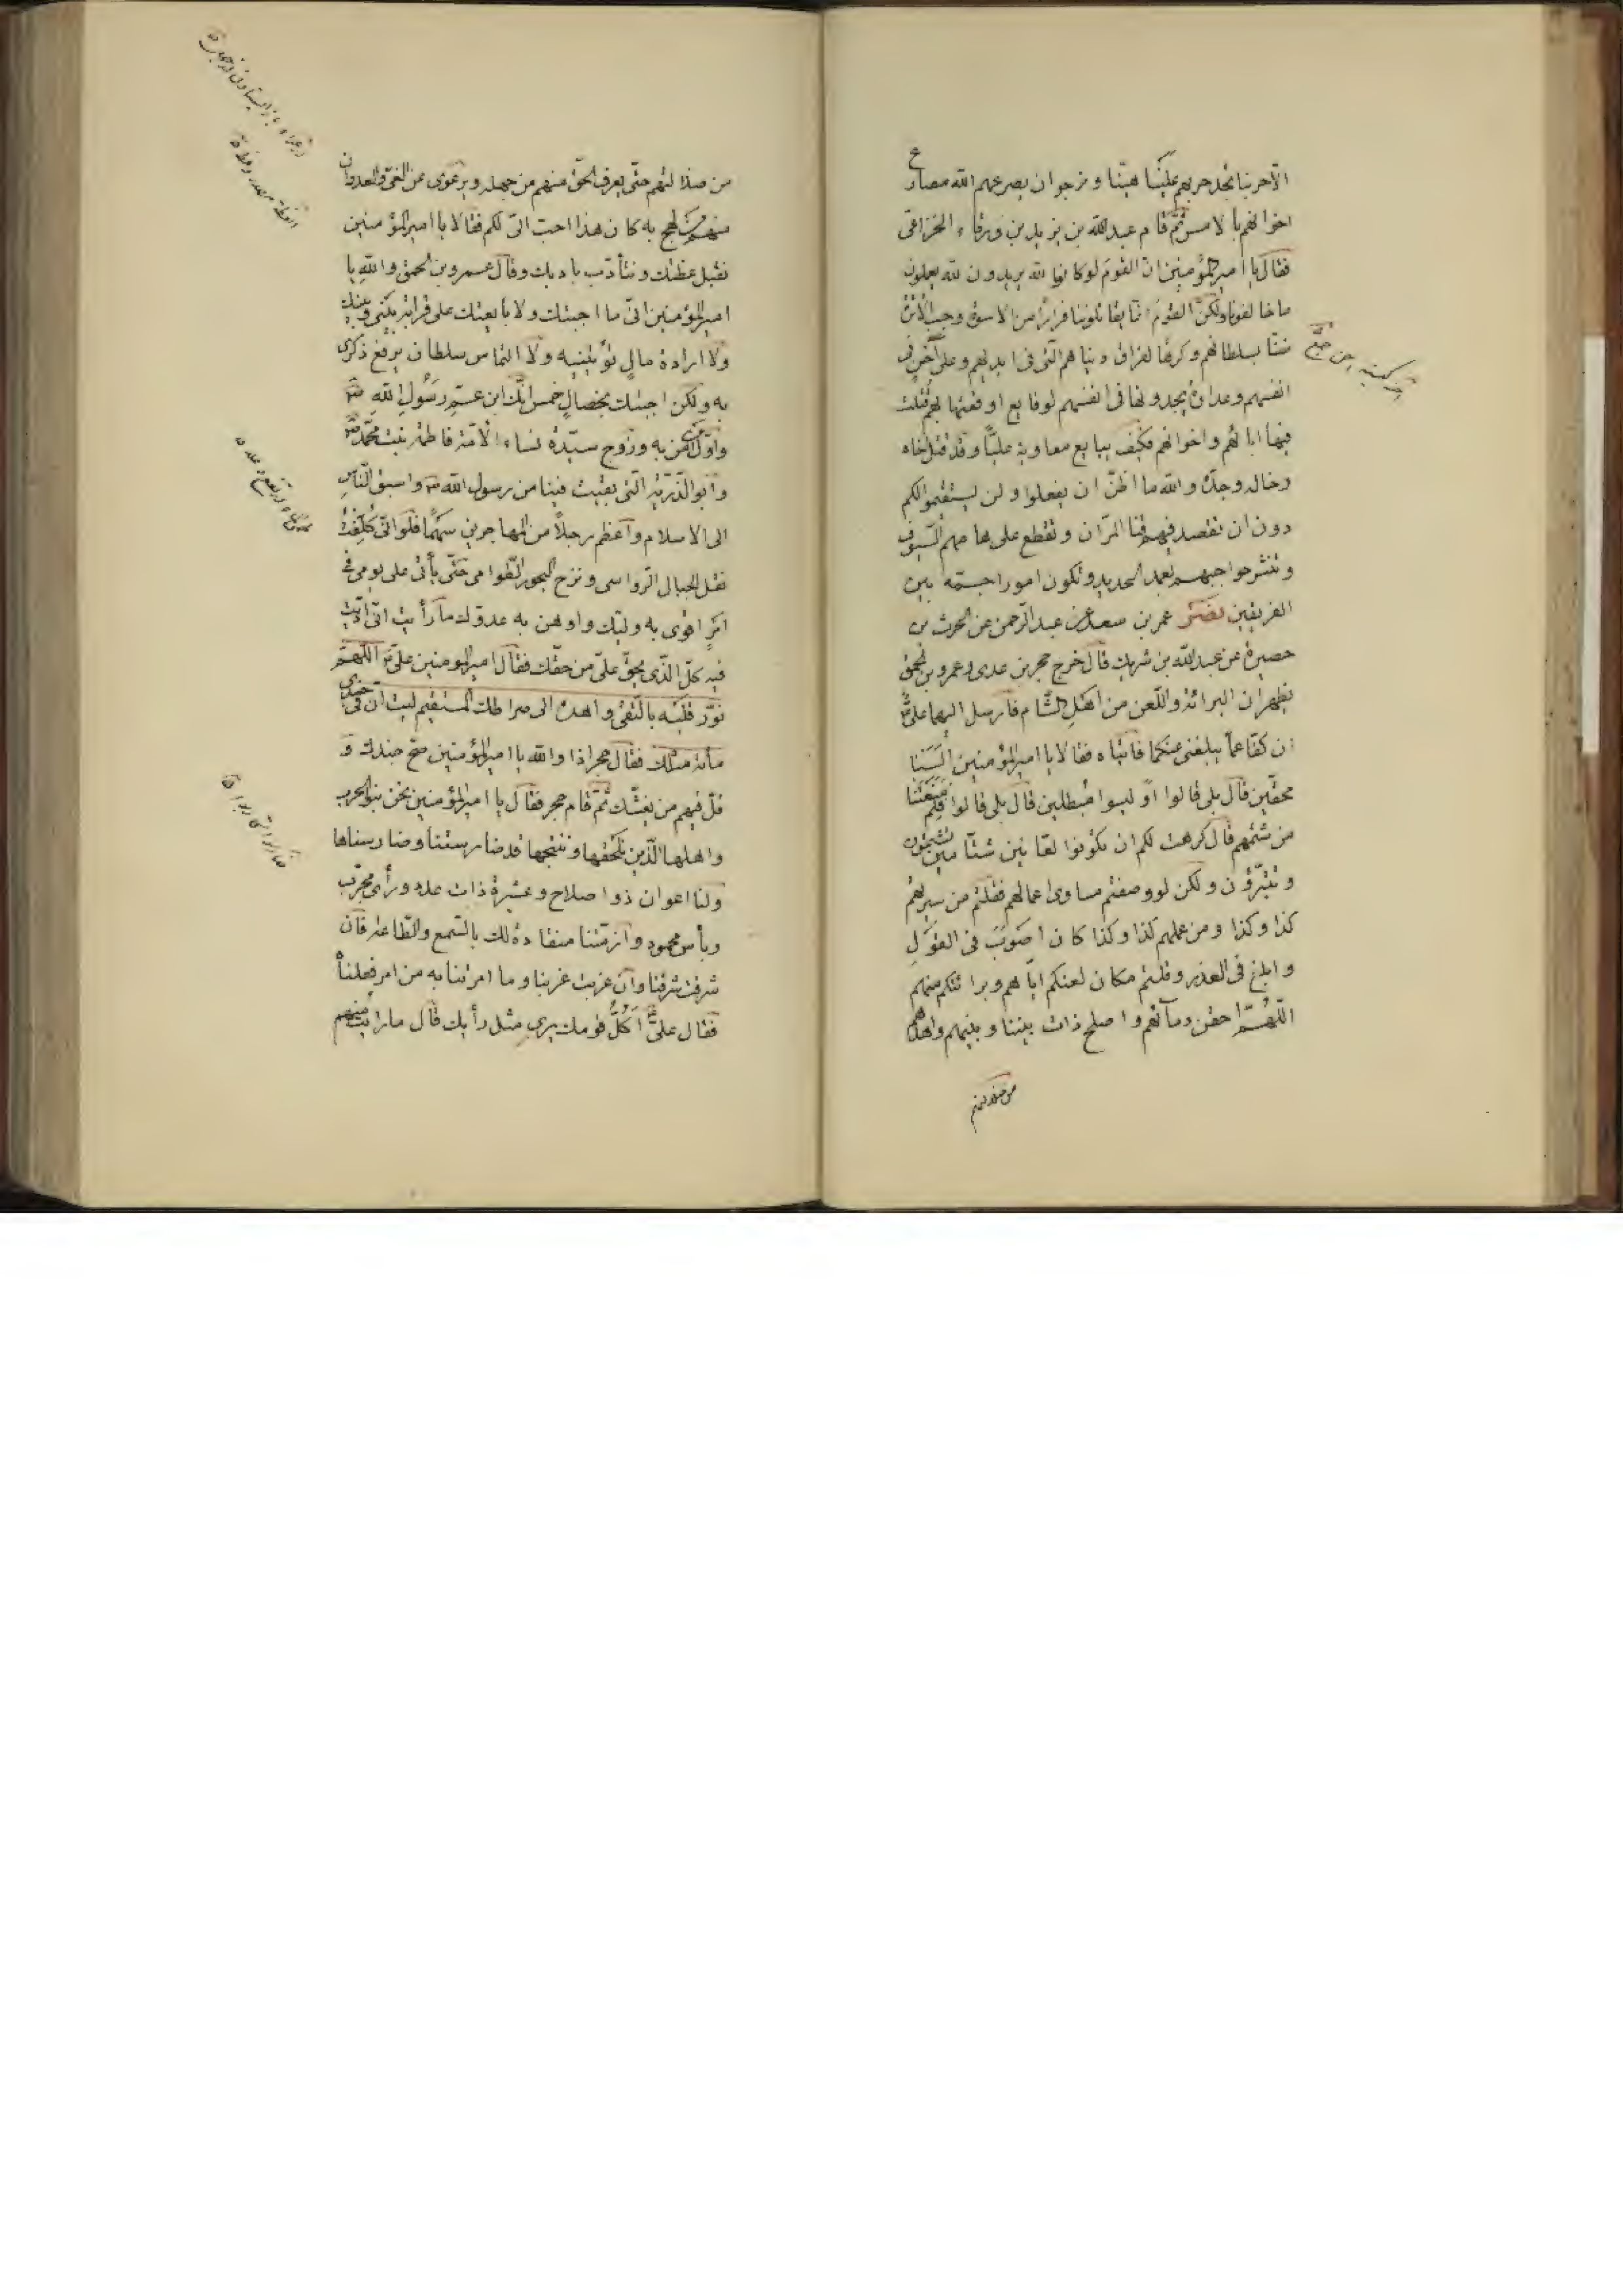 الآخر بنا نجد حربهم علينا هيّنا و نرجو ان يصرعهم الله مصارع
اخوانهم بالامس ثمّ قام عبدالله بن بزيد بن ورقاء الخزاعى
فقال يا اميرالمؤمنين انّ القوم لو كانوا لله يريدون لله يعملون
ما خالفونا ولكنّ القوم انما يقاتلوننا فرارًا من الاسوة وحبّ الاثرة
ضنّا بسلطانهم وكرهًا لفراق دنياهم الّتى فى ايديهم وعلى احن فى
انفسهم وعداوة يجدونها فى انفسهم لوقايع اوقعتها بهم قتلت
فيها اباءهم واخوانهم فكيف يبايع معاوية عليّاً وقد قتل اخاه
وخاله وجدّه والله ما اظنّ ان يفعلوا ولن يستقيموا لكم
دون ان تقصد فيهم قنا المرّان وتقطع على هامهم السيوف
وتنثر حواجبهم بعمد الحديد وتكون امورا جمّه بين
الفريقين نصر عمر بن سعد عن عبدالرّحمن عن الحرث بن
حصيرة عن عبدالله بن شريك قال خرج حجر بن عدى وعمرو بن الحمق
يظهران البرائة واللّعن من اهل الشّام فارسل اليهما علىّ
ان كفّا عمّا يبلغنى عنكما فاتياه فقالا يا اميرالمؤمنين السنا
محقّين قال بلى قالوا او ليسوا مبطلين قال بلى قالوا فلم منعتنا
من شتمهم قال كرهت لكم ان تكونوا لعّانين شتّامين تشتمون
وتتبرّؤن ولكن لو وصفتم مساوى اعمالهم فقلتم من سيرتهم
كذا وكذا ومن عملهم كذا وكذا كان اصوب فى القول
وابلغ فى العذر وقلتم مكان لعنكم ايّاهم وبرائتكم منهم
اللّهمّ احقن دمائهم واصلح ذات بيننا وبينهم واهدهم
من ضلالتهم
من ضلالتهم حتّى يعرف الحق منهم من جهله ويرعوى عن الغىّ والعدوان
منهم من لهج به كان هذا احبّ الىّ لكم فقالا يا اميرالمؤمنين
نقبل عظتك ونتأدّب بادبك وقال عمرو بن الحمق والله يا
اميرالمؤمنين انّى ما اجبتك ولا بايعتك على قرابة بينى وبينك
ولا ارادة مال تؤتينيه ولا التماس سلطان يرفع ذكرى
به ولكن اجبتك بخصال خمس انّك ابن عمّ رسول الله
واوّل من آمن به وزوج سيّدة نساء الامّة فاطمة بنت محمّد
وابو الذّرّيّة الّتى بقيت فينا من رسول الله واسبق النّاس
الى الاسلام واعظم رجلاً من المهاجرين سهمًا فلو انّى كلّفت
نقل الجبال الرّواسى ونزح البحور الطّوامى حتّى يأتى على يومى فى
امر اقوى به وليّك واوهن به عدوّك ما رأيت انّى ادّيت
فيه كلّ الّذى يحقّ علىّ من حقّك فقال اميرالمومنين علىّ اللّهمّ
نوّر قلبه بالتّقى واهده الى صراطك المستقيم ليت انّ فى جندى
مأئة مثلك فقال حجر اذا والله يا اميرالمؤمنين صحّ جندك و
قلّ فيهم من يغشّك ثمّ قام حجر فقال يا اميرالمؤمنين نحن بنو الحرب
واهلها الّذين نلحقها وننتجها قد ضارستنا وضارسناها
ولنا اعوان ذوا صلاح وعشيرة ذات عدد ورأى مجرّب
وبأس محمود وازمّتنا منقادة لك بالسّمع والطّاعة فان
شرّقت شرّقنا وان غرّبت غرّبنا وما امرتنا به من امر فعلناه
فقال علىّ اكلّ قومك يرى مثل رأيك قال ما رايت منهم